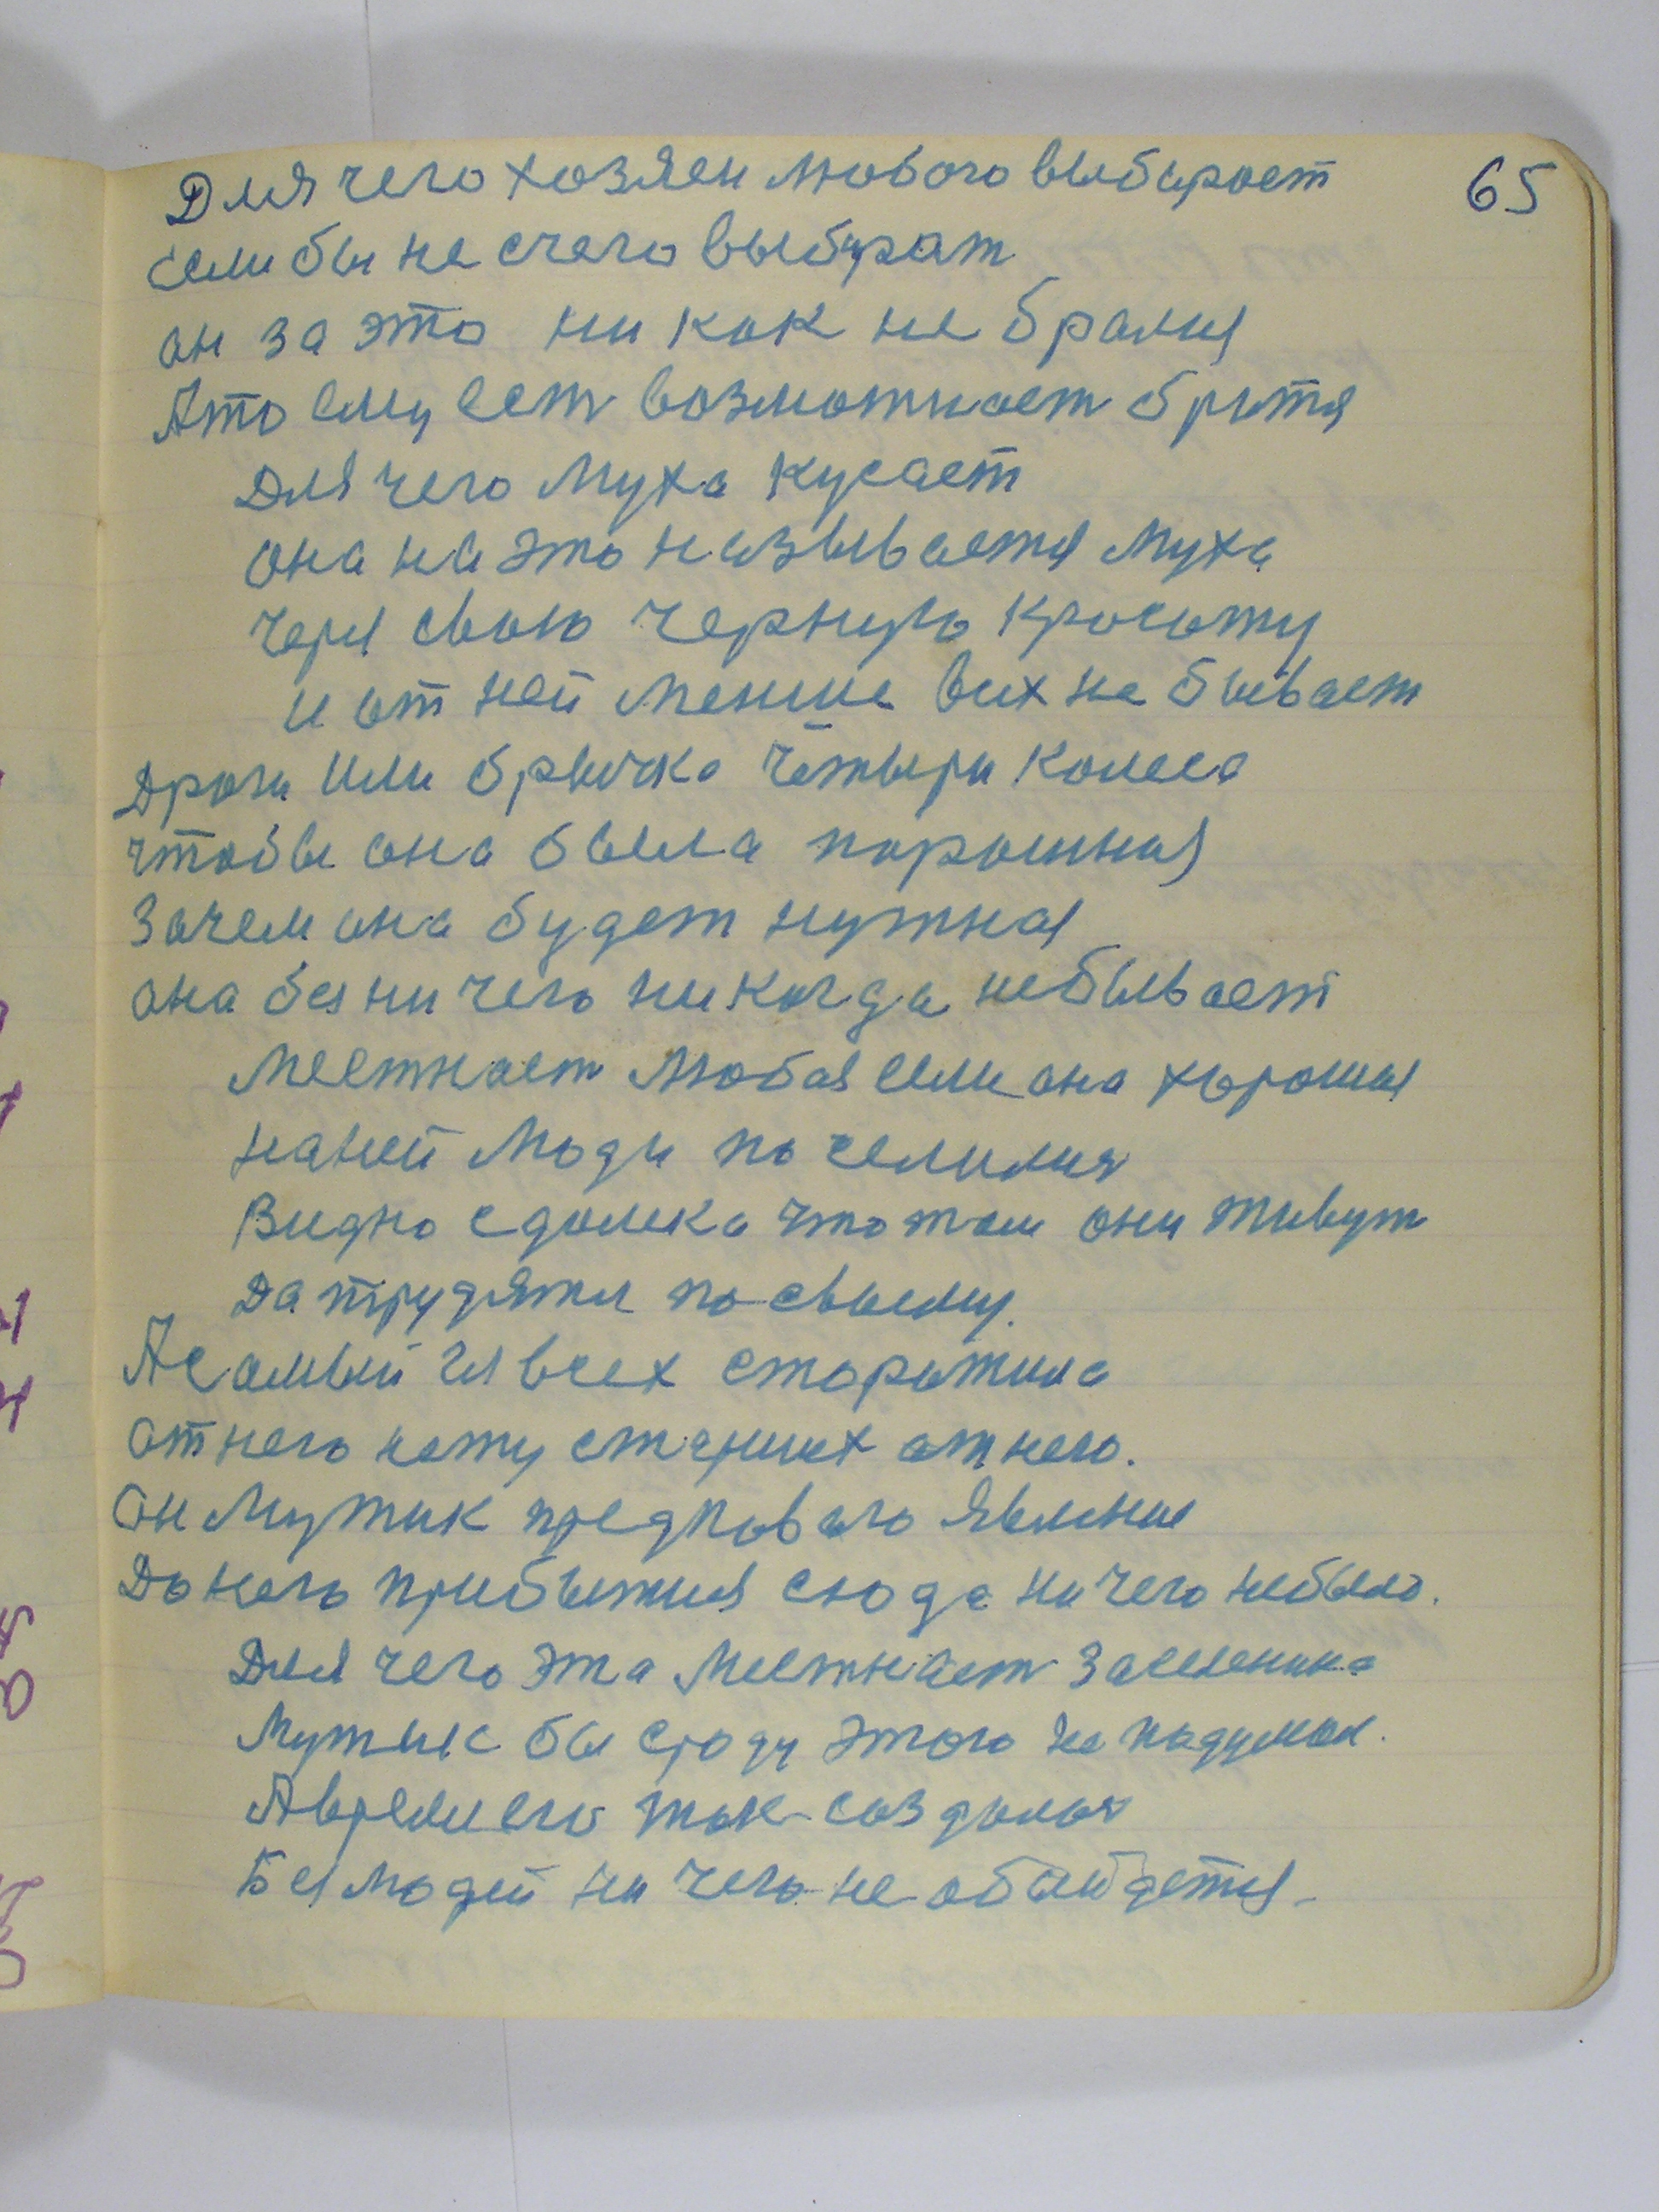 65
Для чего хозяен любого выбирает
если бы не счего выбират
он за это ни как не бралия
Ато ему ест возможност братя
Для чего муха кусает
она на это называется муха
черя свою черную красоту
и от ней менше вих не бывает
Дроги или бричка четыри колеса
чтобы она была порошная
Зачем она будет нужная
она без ни чего ни когда небывает
Местност любая если она хорошая
наней люди по селилия
Видно сдалека что там они живут
Да трудятся по своему.
А самый из всех старожила
от него нету старших от него.
он мужик предпового явление
До него прибытия сюда ни чего небыло.
Для чего эта местност заселенина
Мужик бы сюда этого не подумал.
А время его так создалоя
Без людей ни чего не обойдетия.